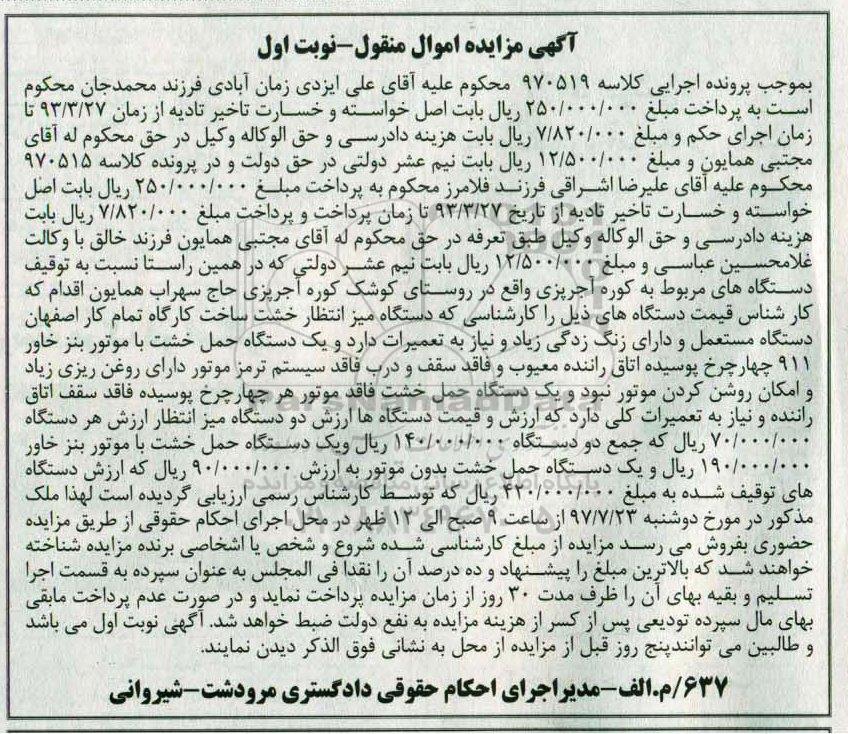 آگهی مزایده اموال منقول-نوبت اول
بموجب پرونده اجرایی کلاسه ۹۷۰۵۱۹ محکوم علیه آقای علی ایزدی زمان آبادی فرزند محمدجان محکوم
است به پرداخت مبلغ ۲۵۰/۰۰۰/۰۰۰ ریال بابت اصل خواسته و خسارت تاخیر تادیه از زمان ۹۳/۳/۲۷ تا
زمان اجرای حکم و مبلغ ۷/۸۲۰/۰۰۰ ریال بابت هزینه دادرسی و حق الوکاله وکیل در حق محکوم له آقای
مجتبی همایون و مبلغ ۱۲/۵۰۰/۰۰۰ ریال بابت نیم عشر دولتی در حق دولت و در پرونده کلاسه ۹۷۰۵۱۵
محکوم علیه آقای علیرضا اشراقی فرزند فلامرز محکوم به پرداخت مبلغ ۲۵۰/۰۰۰/۰۰۰ ریال بابت اصل
خواسته و خسارت تاخیر تادیه از تاریخ ۹۳/۳/۲۷ تا زمان پرداخت و پرداخت مبلغ ۷/۸۲۰/۰۰۰ ریال بابت
هزینه دادرسی و حق الوکاله وکیل طبق تعرفه در حق محکوم له آقای مجتبی همایون فرزند خالق با وکالت
غلامحسین عباسی و مبلغ ۱۲/۵۰۰/۰۰۰ ریال بابت نیم عشر دولتی که در همین راستا نسبت به توقیف
دستگاه های مربوط به کوره آجرپزی واقع در روستای کوشک کوره آجرپزی حاج سهراب همایون اقدام که
کار شناس قیمت دستگاه های ذیل را کارشناسی که دستگاه میز انتظار خشت ساخت کارگاه تمام کار اصفهان
دستگاه مستعمل و دارای زنگ زدگی زیاد و نیاز به تعمیرات دارد و یک دستگاه حمل خشت با موتور بنز خاور
۹۱۱ چهارچرخ پوسیده اتاق راننده معیوب و فاقد سقف و درب فاقد سیستم ترمز موتور دارای روغن ریزی زیاد
و امکان روشن کردن موتور نبود و یک دستگاه حمل خشت فاقد موتور هر چهارچرخ پوسیده فاقد سقف اتاق
راننده و نیاز به تعمیرات کلی دارد که ارزش و قیمت دستگاه ها ارزش دو دستگاه میز انتظار ارزش هر دستگاه
۷۰/۰۰۰/۰۰۰ ریال که جمع دو دستگاه ۱۴۰/۰۰۰/۰۰۰ ریال ویک دستگاه حمل خشت با موتور بنز خاور
۱۹۰/۰۰۰/۰۰۰ ریال و یک دستگاه حمل خشت بدون موتور به ارزش ۹۰/۰۰۰/۰۰۰ ریال که ارزش دستگاه
های توقیف شده به مبلغ ۴۲۰/۰۰۰/۰۰۰ ریال که توسط کارشناس رسمی ارزیابی گردیده است لهذا ملک
مذکور در مورخ دوشنبه ۹۷/۷/۲۳ از ساعت ۹ صبح الی ۱۲ ظهر در محل اجرای احکام حقوقی از طریق مزایده
حضوری بفروش می رسد مزایده از مبلغ کارشناسی شده شروع و شخص یا اشخاصی برنده مزایده شناخته
خواهند شد که بالاترین مبلغ را پیشنهاد و ده درصد آن را نقدا فی المجلس به عنوان سپرده به قسمت اجرا
تسلیم و بقیه بهای آن را ظرف مدت ۳۰ روز از زمان مزایده پرداخت نماید و در صورت عدم پرداخت مابقی
بهای مال سپرده تودیعی پس از کسر از هزینه مزایده به نفع دولت ضبط خواهد شد. آگهی نوبت اول می باشد
و طالبین می توانندپنج روز قبل از مزایده از محل به نشانی فوق الذکر دیدن نمایند.
۶۳۷/م.الف-مدیراجرای احکام حقوقی دادگستری مرودشت-شیروانی